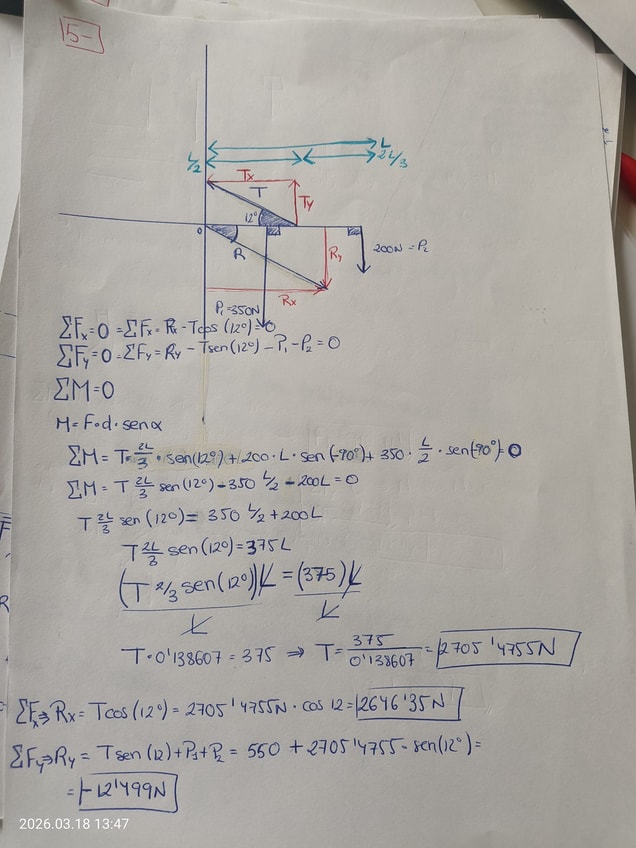 5-
L
L/2
2L/3
Tx
T
Ty
12º
0
R
Ry
200N = P2
Rx
P1=350N
ΣFx=0 = ΣFx = Rx - Tcos (12º)=0
ΣFy=0 = ΣFy = Ry - Tsen(12º) - P1 - P2 = 0
ΣM=0
M = F·d·senα
ΣM = T· 2L/3 · sen(12º) + 200 · L · sen(-90º) + 350 · L/2 · sen(-90º) = 0
ΣM = T 2L/3 sen(12º) - 350 L/2 - 200L = 0
T 2L/3 sen (12º) = 350 L/2 + 200L
T 2L/3 sen(12º) = 375L
(T 2/3 sen(12º))L = (375)L
L L
T·0'138607 = 375 ⇒ T = 375/0'138607 = 2705'4755N
ΣFx ⇒ Rx = Tcos (12º) = 2705'4755N · cos 12 = 2646'35N
ΣFy ⇒ Ry = Tsen (12) + P1 + P2 = 550 + 2705'4755 · sen(12º) =
= -12'499N
2026.03.18 13:47